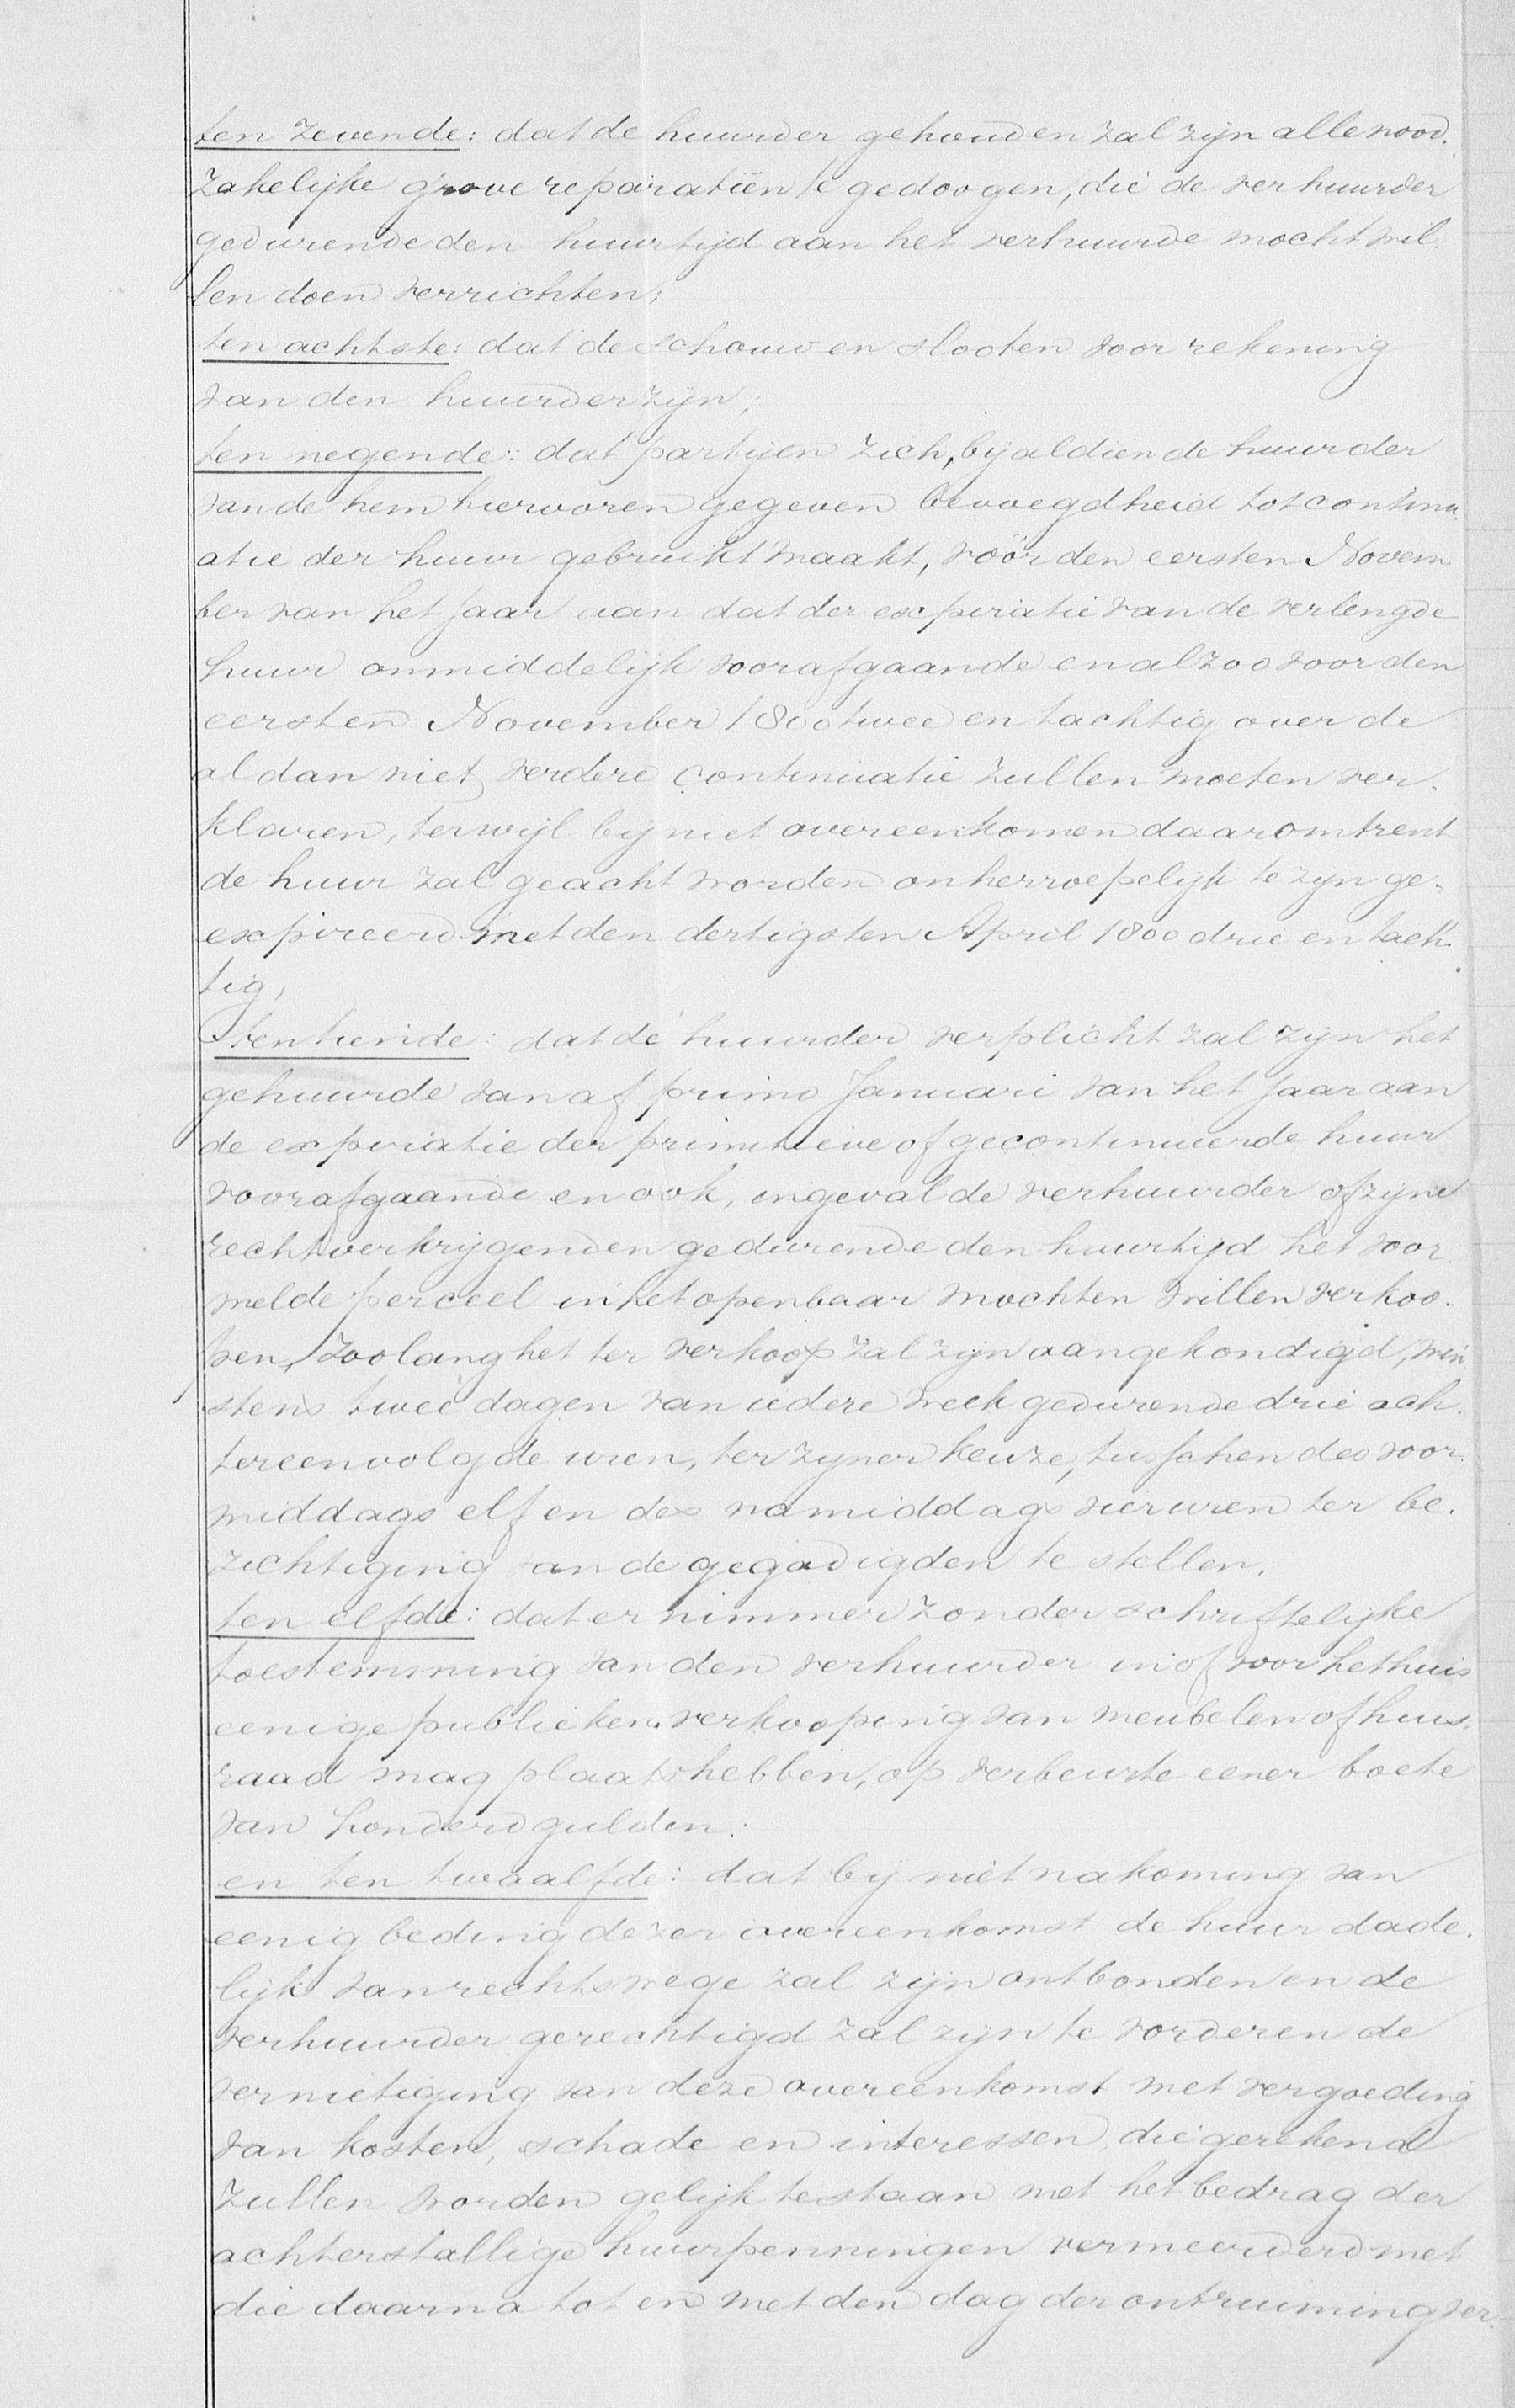 ten zevende: dat de huurder gehouden zal zijn alle nood.
zakelijke grove reparatiën te gedoogen, die de verhuurder
gedurende den huurtijd aan het verhuurde mocht wil.
len doen verrichten;
ten achtste: dat de schouw en slooten voor rekening
van den huurder zijn;
ten negende: dat partijen zich, bijaldien de huurder
van de hem hiervoren gegeven bevoegdheid tot continu.
atie der huur gebruikt maakt, vóór den eersten Novem.
ber van het jaar aan dat der expiratie van de verlengde
huur onmiddelijk voorafgaande en alzoo voor den
eersten November 1800 twee en tachtig over de
al dan niet verdere continuatie zullen moeten ver.
klaren, terwijl bij niet overeenkomen daaromtrent
de huur zal geacht worden onherroepelijk te zijn ge.
expireerd met den dertigsten April 1800 drie en tach.
tig,
ten tiende: dat de huurder verplicht zal zijn het
gehuurde van af primo Januari van het jaar aan
de expiratie der primitieve of gecontinueerde huur
voorafgaande en ook, ingeval de verhuurder of zijne
rechtverkrijgenden gedurende den huurtijd het voor
melde perceel in het openbaar mochten willen verkoo.
pen, zoolang het ter verkoop zal zijn aangekondigd, min.
stens twee dagen van iedere week gedurende drie ach.
tereenvolgde uren, ter zijner keuze, tusschen des voor.
middags elf en des namiddags vier uren ter be.
zichtiging van de gegadigden te stellen.
ten elfde: dat er nimmer zonder schriftelijke
toestemming van den verhuurder in of voor het huis
eenige publieken verkooping van meubelen of huis.
raad mag plaats hebben, op verbeurte eener boete
van honderd gulden:
en ten twaalfde: dat bij niet nakoming van
eenig beding dezer overeenkomst de huur dade.
lijk van rechtswege zal zijn ontbonden en de
verhuurder gerechtigd zal zijn te vorderen de
vernietiging van deze overeenkomst met vergoeding
van kosten, schade en interessen, die gerekend
zullen worden gelijk te staan met het bedrag der
achterstallige huurpenningen vermeerderd met
die daarna tot en met den dag der ontruiming ver.